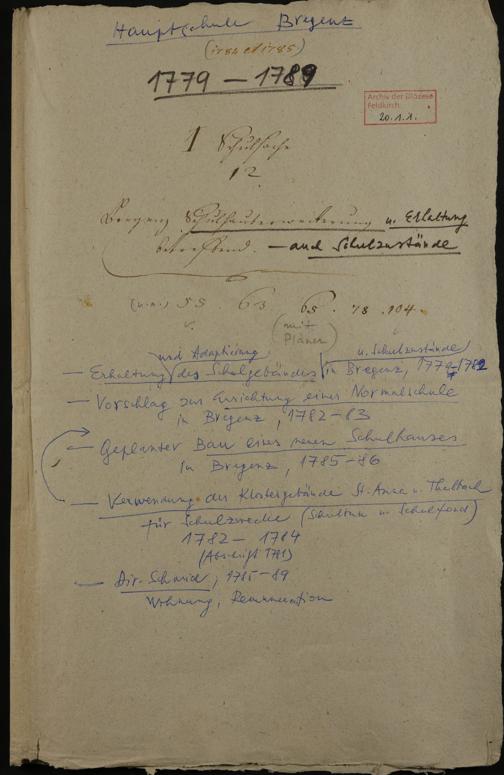 Hauptschule Bregenz
(1782 et 1785)
1779 – 1789
Archiv der Diözese
Feldkirch
20.1.1.
1 Schulsache
12
Bregenz Schulhauserweiterung u. Erhaltung
betreffend. – auch Schulzustände
55. 63 65. 78. 104.
(mit
Pläner)
und Adaptierung u. Schulzustände
– Erhaltung des Schulgebäudes in Bregenz, 1779-1782
– Vorschlag zur Errichtung einer Normalschule
in Bregenz, 1782–83
– Geplanter Bau eines neuen Schulhauses
in Bregenz, 1785–86
– Verwendung der Klostergebäude St. Anna u. Thalbach
für Schulzwecke (Schulbau u. Schulfond)
1782 – 1784
(Abschrift 1781)
– Dir. Schmid, 1785–89
Wohnung, Remuneration